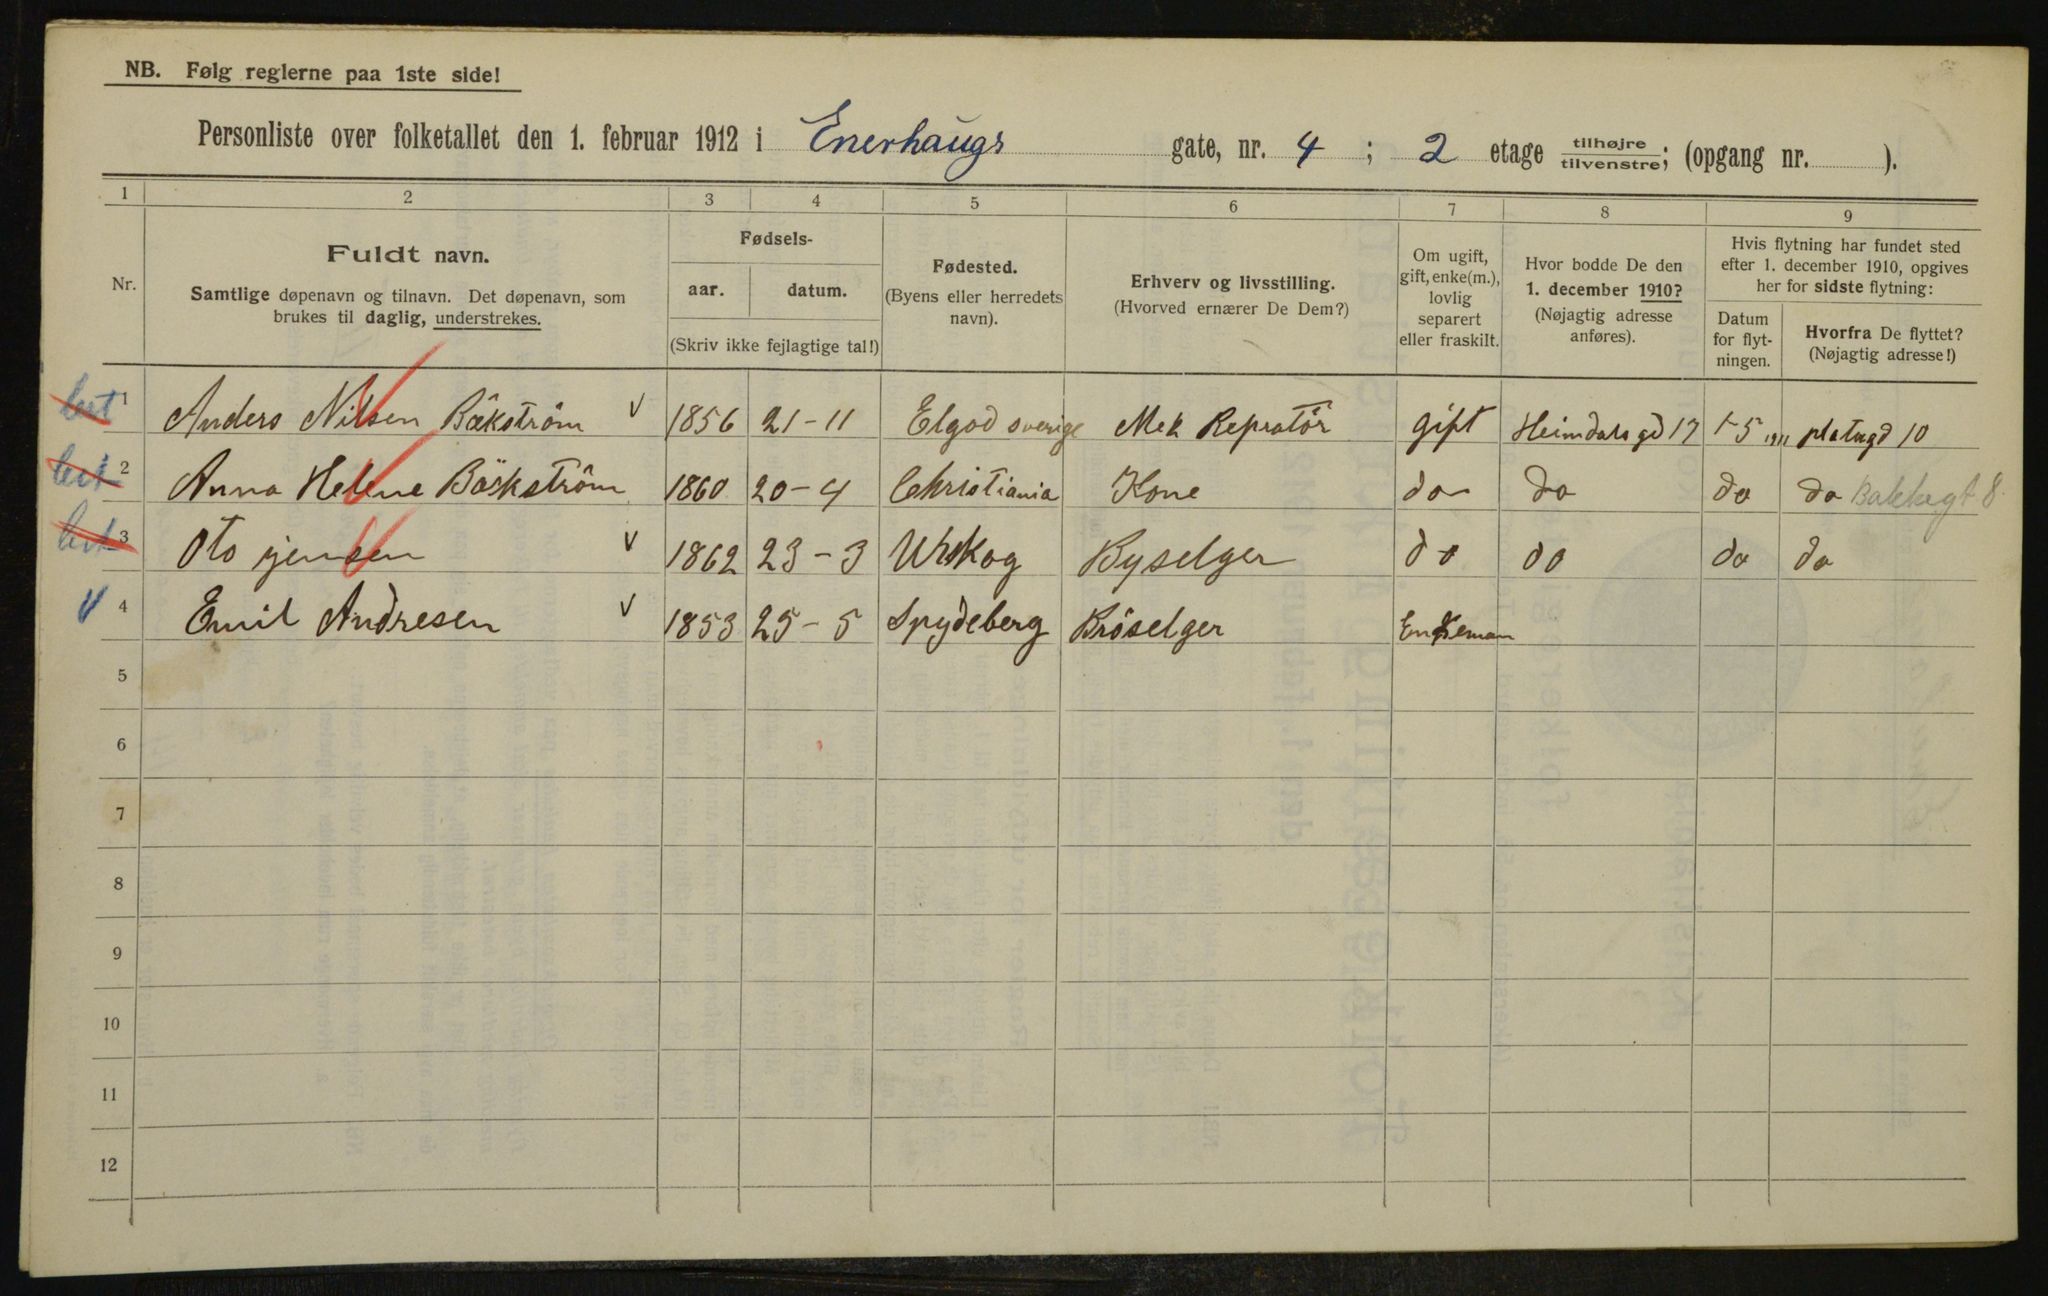 NB. Følg reglerne paa 1ste side!
Personliste over folketallet den 1. februar 1912 i Enerhaugs gate, nr. 4 ; 2 etage tilhøjre tilvenstre; (opgang nr. ).
1 2 3 4 5 6 7 8 9
Nr.
Fuldt navn.
Samtlige døpenavn og tilnavn. Det døpenavn, som
brukes til daglig, understrekes.
Fødsels-
aar. datum.
(Skriv ikke fejlagtige tal!)
Fødested.
(Byens eller herredets
navn).
Erhverv og livsstilling.
(Hvorved ernærer De Dem?)
Om ugift,
gift, enke(m.),
lovlig
separert
eller fraskilt.
Hvor bodde De den
1. december 1910?
(Nøjagtig adresse
anføres).
Hvis flytning har fundet sted
efter 1. december 1910, opgives
her for sidste flytning:
Datum
for flyt-
ningen.
Hvorfra De flyttet?
(Nøjagtig adresse!)
1 Anders Nilsen Bäkström v 1856 21-11 Elgod sverige Mek Repratör gift Heimdals gd 17 1-5 1911 platugd 10
2 Anna Helene Bäckström 1860 20-4 Christiania Kone do do do do Bakkegt 8.
3 Oto jensen v 1862 23-3 Urskog Byselger do do do do
v 4 Emil Andresen v 1853 25-5 Spydeberg Bröselger Enkeman
5
6
7
8
9
10
11
12